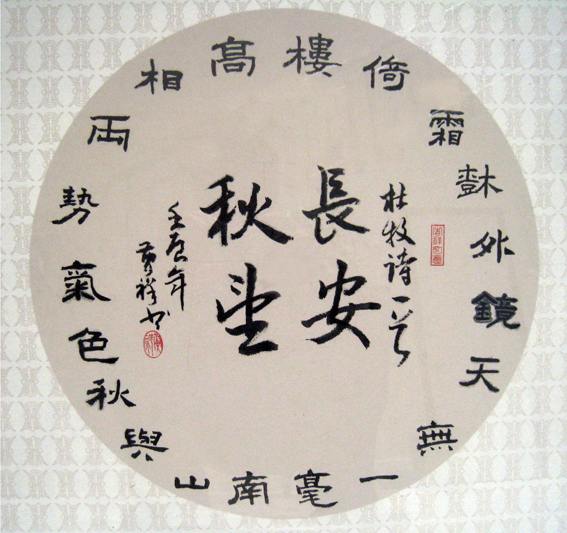 樓倚霜樹外鏡天無一毫南山與秋色氣勢両相髙
杜牧詩一首
長安
秋望
壬辰年
书